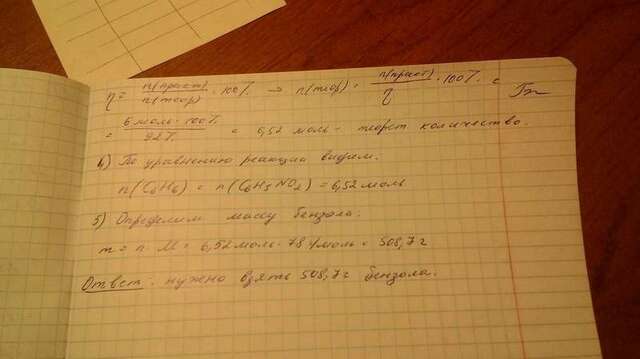 η = n(практ)/n(теор) · 100% → n(теор) = n(практ)/η · 100% =
= 6 моль · 100%/92% = 6,52 моль - теорет количество.
4) По уравнению реакции видим.
n(C6H6) = n(C6H5NO2) = 6,52 моль
5) Определим массу бензола.
m = n · M = 6,52 моль · 78 г/моль = 508,7 г
Ответ: нужно взять 508,7 г бензола.